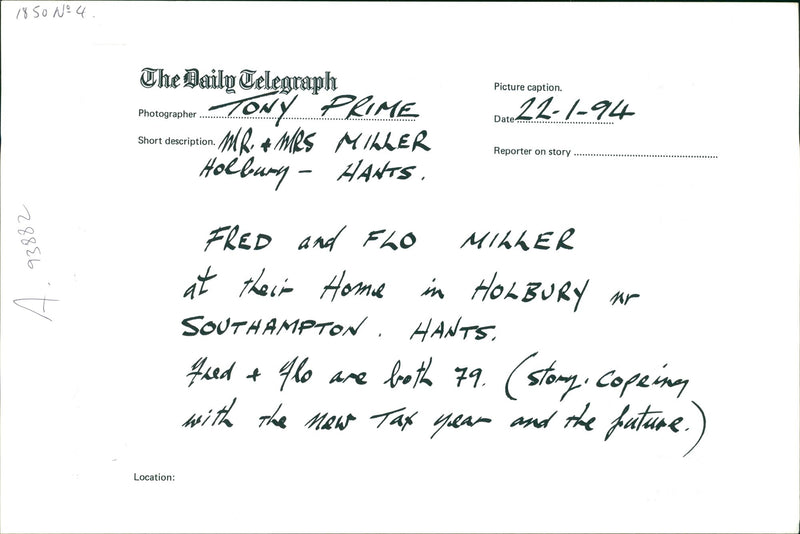 1850 Nº 4.
The Daily Telegraph
Picture caption.
Photographer TONY PRIME
Date 22-1-94
Short description. MR. + MRS MILLER
Holbury - HANTS.
Reporter on story
FRED and FLO MILLER
at their Home in HOLBURY nr
SOUTHAMPTON. HANTS.
Fred + Flo are both 79. (story. Copeing
with the New Tax year and the future.)
A. 93882
Location: